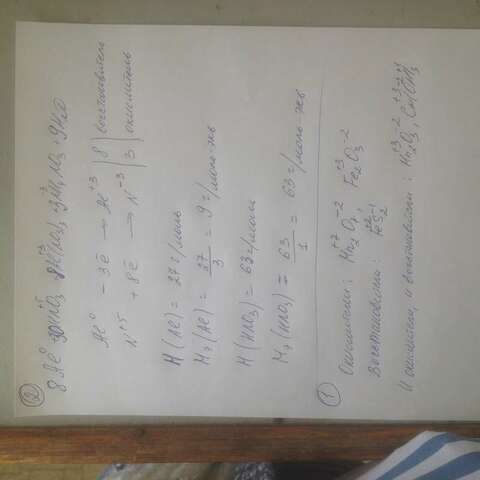 ②
8Al⁰ + 30HNO₃ 8Al(NO₃)₃ + 3NH₄NO₃ + 9H₂O
Al⁰ - 3ē → Al⁺³ | 8 | восстановитель
N⁺⁵ + 8ē → N⁻³ | 3 | окислитель
M(Al) = 27 г/моль
Mэ(Al) = 27/3 = 9 г/моль экв
M(HNO₃) = 63 г/моль
Mэ(HNO₃) = 63/1 = 63 г/моль экв
①
Окислители: Mn₂⁺⁷O₇⁻² Fe₂⁺³O₃⁻²
Восстановители: FeS₂⁻¹
И окислители, и восстановители: O₃⁻²